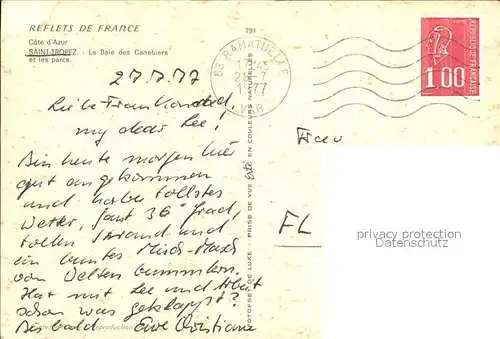 REFLETS DE FRANCE
791
Côte d'Azur
SAINT-TROPEZ. - La Baie des Canebiers
et les parcs.
83 RAMATUELLE
1977
VAR
POSTES
1,00
REPUBLIQUE FRANÇAISE
27.7.77
Liebe Frau
my dear Lee!
Bin heute morgen hier
gut angekommen
und habe tollstes
Wetter, fast 36 Grad,
tollen Strand und
ein buntes Misch-Masch
von Welten bummeln.
Hat mit Lee und
schon was geklappt?
Bis bald Eure Christiane
Frau
FL
PHOTOS DE LUXE - PRISE DE VUE Edité EN COULEURS NATURELLES
privacy protection
Datenschutz